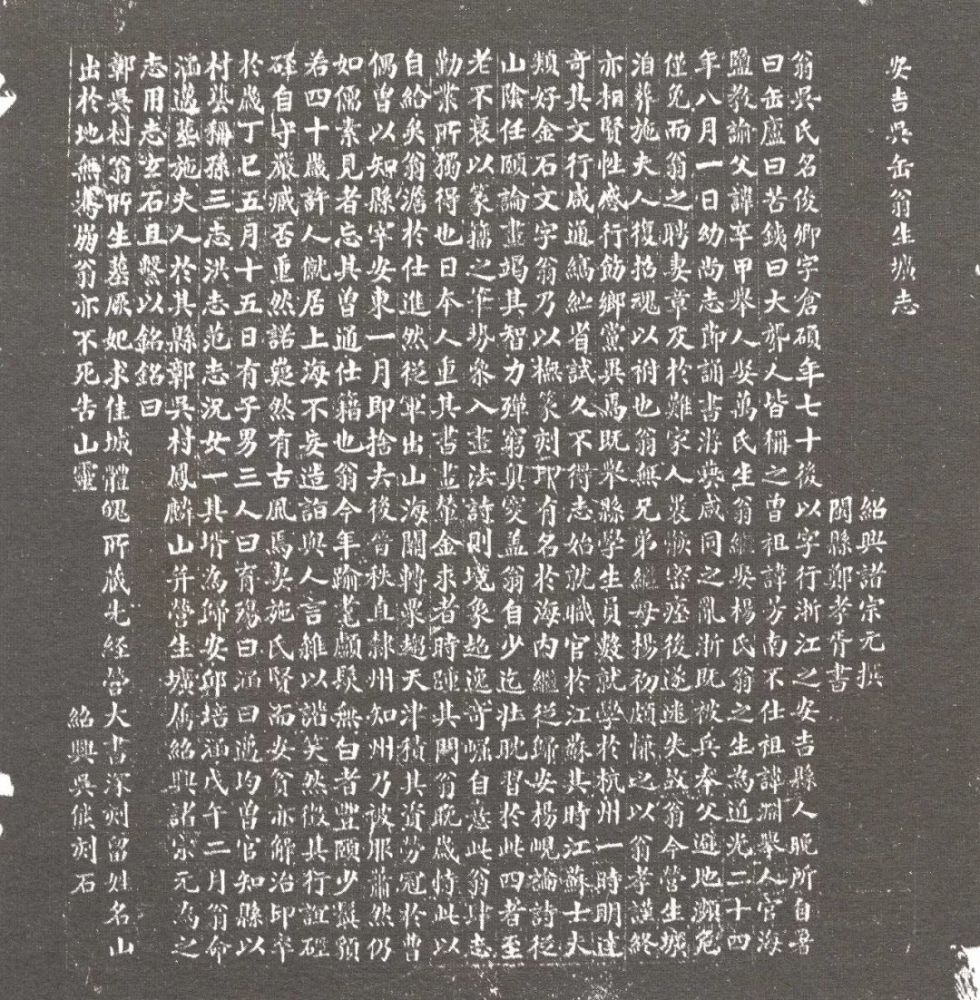 安吉吳缶翁生壙志
紹興諸宗元撰
閩縣鄭孝胥書
翁吳氏名俊卿字倉碩年七十後以字行浙江之安吉縣人晚所自署
曰缶廬曰苦鐵曰大聾人皆稱之曾祖諱芳南不仕祖諱淵舉人官海
鹽教諭父諱辛甲舉人娶萬氏生翁繼娶楊氏翁之生為道光二十四
年八月一日幼尚志節誦書游典咸同之亂浙既被兵奉父避地瀕危
僅免而翁之聘妻章及於難家人裝懒密瘞後遂迷失故翁今營生壙
洎葬施夫人復招魂以祔也翁無兄弟繼母楊初頗慊之以翁孝謹終
亦相賢性感行飭鄉黨異焉既舉縣學生員數就學於杭州一時明達
奇其文行咸通縞紵省試久不得志始就職官於江蘇其時江蘇士大
類好金石文字翁乃以橅篆刻印有名於海內繼從歸安楊峴論詩從
山陰任頤論畫竭其智力殫窮奧窔蓋翁自少迄壯耽習於此四者至
老不衰以篆籀之筆勢象入畫法詩則境象迨逸奇崛自意此翁肆志
勤業所獨得也日本人重其書畫輦金求者時踵其門翁晚歲恃此以
自給矣翁澹於仕進然從軍出山海關轉粟趨天津積其資勞冠於曹
偶曾以知縣宰安東一月即捨去後晉秩直隸州知州乃被服蕭然仍
如儒素見者忘其曾通仕籍也翁今年踰耄顱髮無白者豐頤少鬚頎
若四十歲許人僦居上海不妄造詣與人言雜以諧笑然徵其行誼硜
硜自守嚴臧否重然諾嶷然有古風焉妻施氏賢而安貧亦解治印卒
於歲丁巳五月十五日有子男三人曰育殤曰涵曰邁均曾官知縣以
村藝稱孫三志洪志范志況女一其壻為歸安邱培涵戊午二月翁命
涵邁葬施夫人於其縣鄣吳村鳳麟山并營生壙屬紹興諸宗元為之
志用志玄石且繫以銘銘曰
鄣吳村翁所生葬厥妃求佳城體魄所藏先經營大書深刻留姓名山
出於地無騫崩翁亦不死告山靈
紹興吳熊刻石